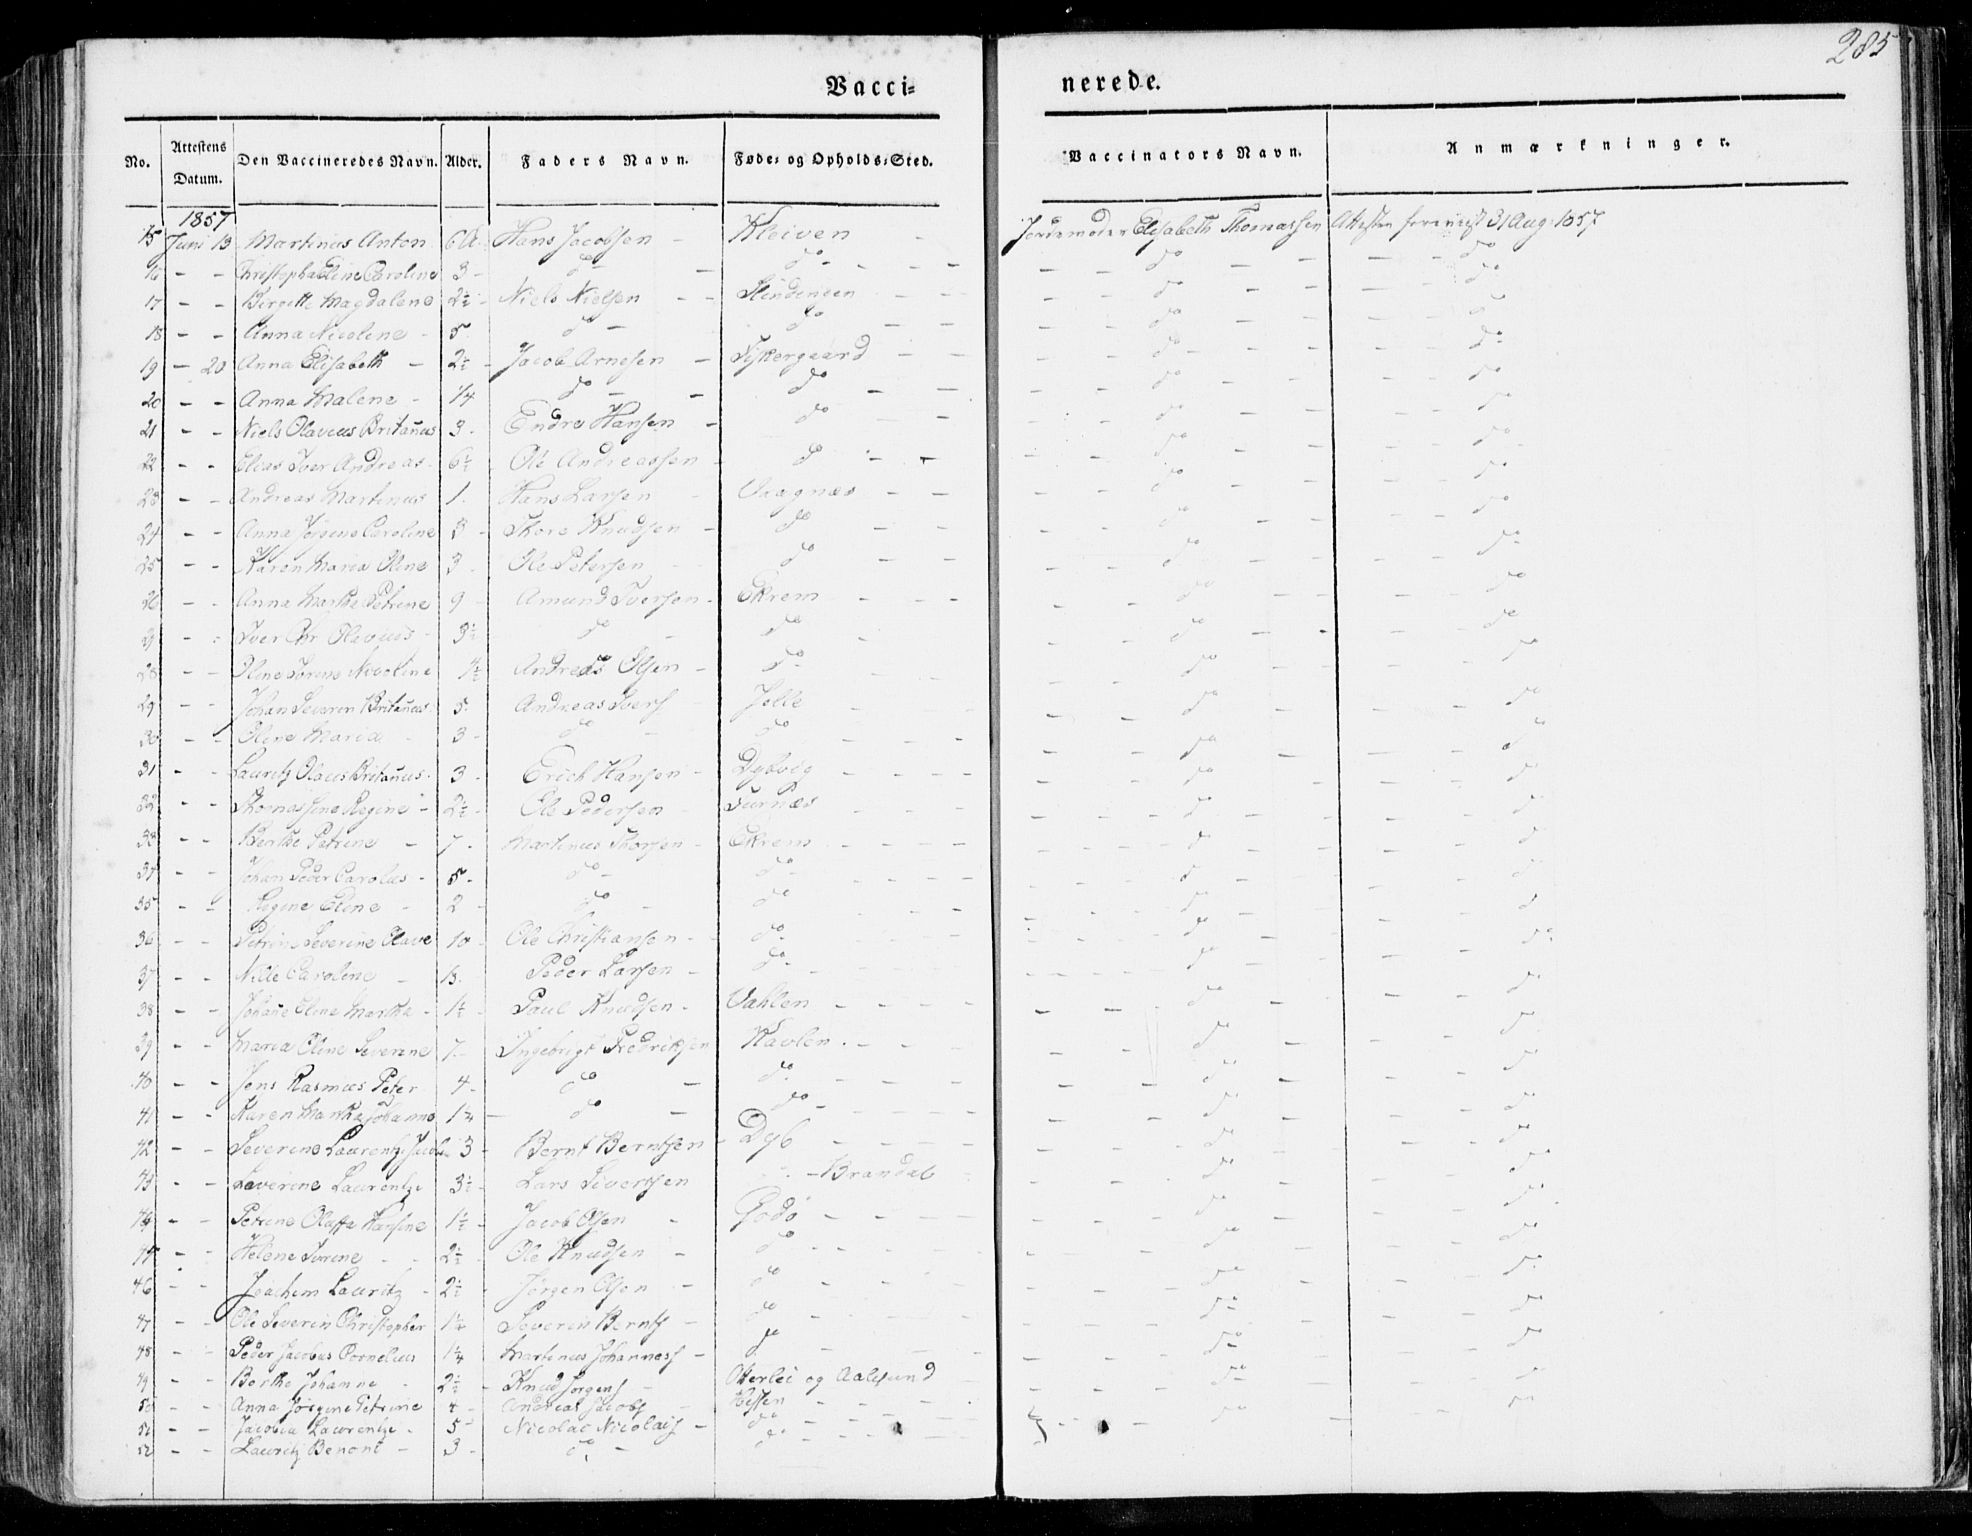 285
Vacci= nerede.
No. Attestens Datum. Den Vaccineredes Navn. Alder. Faders Navn. Føde= og Opholds=Sted. Vaccinators Navn. Anmærkninger.
1857
15 Juni 13 Martinus Anton 6 A. Hans Jacobsen - Kleiven - Jordemoder Elisabeth Thomassen Attesten foreviist 31 Aug: 1857
16 - - Christopha Eline Caroline 3 - do - do - do do
17 - - Birgitte Magdalene 2½ - Niels Nielsen - - do do
18 - - Anna Nicoline - 5 do - do do do
19 - 20 Anna Elisabeth - 2½ - Jacob Arnesen - Fiskergaard - - do do
20 - - Anna Malene - 1/4 do - do - - do do
21 - - Niels Olavus Britanus 3 - Endre Hansen - do do do
22 - - Elias Iver Andreas - 6½ - Ole Andreassen - do - - do do
23 - - Andreas Martinus 1 - Hans Larsen - Vaagnæs - - do do
24 - - Anna Caroline 3 - Thore Knudsen - do - - do do
25 - - Karen Maria Oline 3 - Ole Petersen do - - do do
26 - - Anna Marthe Petrine 9 - Amund Iversen - Ekrem - - - do do
27 - - Iver Chr Olavus 3½ do - do - do do
28 - - Oline Nicoline 1½ - Andreas Olsen - do - do do
29 - - Johan Severin Britanus 5 - Andreas Ivers - do do
30 - - Oline Maria - 3 - do - do - - - do do
31 - - Lauritz Olaus Britanus - 3 - Erich Hansen - Dybvig - - - do do
32 - - Thomassine Regine - 2½ - Ole Pedersen - Furnæs - - - do do
33 - - Berthe Petrine - 7 - Martinus Thorsen - Ekrem - - - do do
34 - - Johan Peder Carolus - 5 - do - do - - - do do
35 - - Regine Eline - 2 - do - do - - - do do
36 - - Petrine Severine Olave 10 - Ole Christiansen - do - - - do do
37 - - Nille Caroline - 13 - Peder Larsen - do - - - do do
38 - - Johane Eline Marthe - 1½ - Paul Knudsen - Vahlen - - - do do
39 - - Maria Oline Severine 7 - Ingebrigt Fredriksen Havlen - - - do do
40 - - Jens Rasmus Peter 4 - do - do - - - do do
41 - - Karen Martha Johanne do - do - - - do do
42 - - Severine Laurentze 3 - Bernt Berntsen - Dyb - - - do do
43 - - Severine Laurentze 3½ - Lars Sivertsen - Brandal - do do
44 - - Petrine Oluffa Hansine 1½ - Jacob Olsen - Godø - - - do do
45 - - Helene - 2½ - Ole Knudsen - do - - - do do
46 - - Joachim Lauritz - 2½ - Jørgen Olsen - do - - - do do
47 - - Ole Severin Christopher Severin Bernts - do - - - do do
48 - - Peder Jacobus Cornelius 1¼ Martinus Johannes - do - - - do do
49 - - Berthe Johanne - 2½ - Knud Jørgens - og Aalesund - do do
50 - - Anna Jørgine Petrine 4 - Andreas Jacobs - Hessen - - - do do
51 - - Jacobia Laurentze - 5 - Nicolai Nicolais - do
52 - - Lauritz Benoni - 3 - do - do - - -